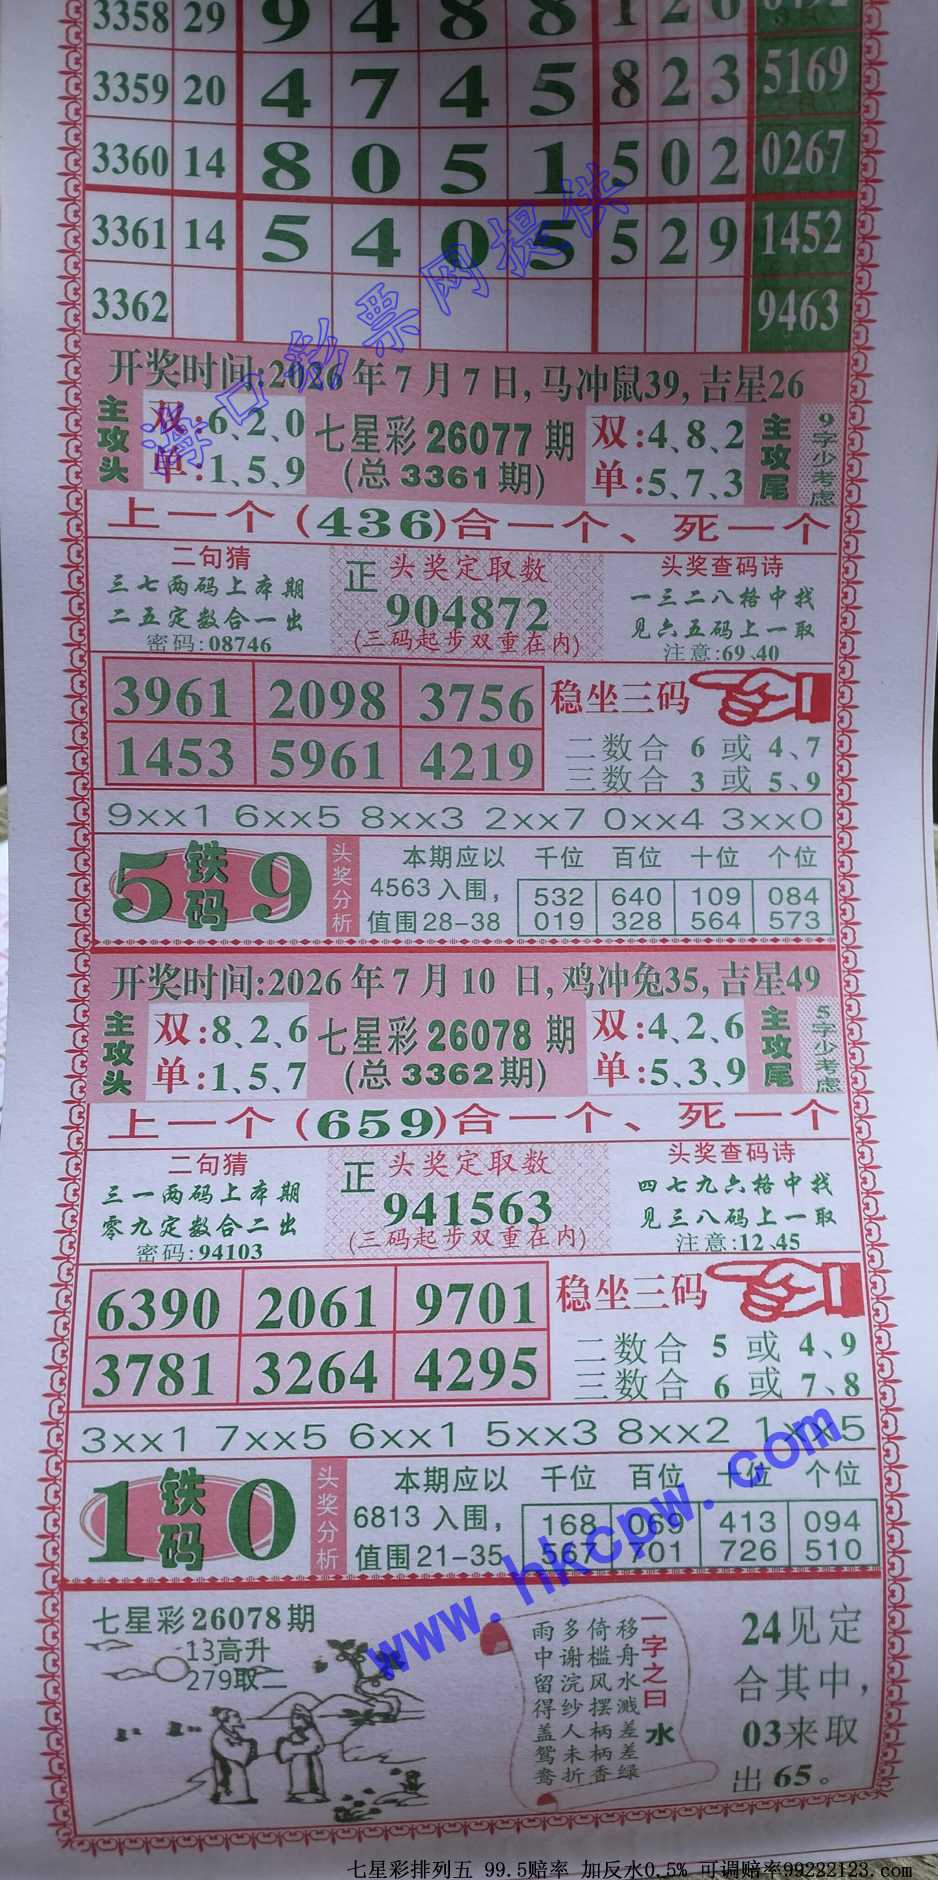 3358 29 9 4 8 8 1 2 6 0492
3359 20 4 7 4 5 8 2 3 5169
3360 14 8 0 5 1 5 0 2 0267
3361 14 5 4 0 5 5 2 9 1452
3362 9463
海口彩票网提供
开奖时间:2026年7月7日,马冲鼠39,吉星26
主攻头
双:6、2、0
单:1、5、9
七星彩 26077 期
(总3361期)
双:4、8、2
单:5、7、3
主攻尾
9字少考虑
上一个(436)合一个、死一个
二句猜
三七两码上本期
二五定数合一出
密码:08746
正
头奖定取数
904872
(三码起步双重在内)
头奖查码诗
一三二八格中找
见六五码上一取
注意:69、40
3961 2098 3756
1453 5961 4219
稳坐三码
二数合 6 或 4、7
三数合 3 或 5、9
9xx1 6xx5 8xx3 2xx7 0xx4 3xx0
5 铁码 9
头奖分析
本期应以
4563入围,
值围28-38
千位 百位 十位 个位
532 640 109 084
019 328 564 573
开奖时间:2026年7月10日,鸡冲兔35,吉星49
主攻头
双:8、2、6
单:1、5、7
七星彩 26078 期
(总3362期)
双:4、2、6
单:5、3、9
主攻尾
5字少考虑
上一个(659)合一个、死一个
二句猜
三一两码上本期
零九定数合二出
密码:94103
正
头奖定取数
941563
(三码起步双重在内)
头奖查码诗
四七九六格中找
见三八码上一取
注意:12、45
6390 2061 9701
3781 3264 4295
稳坐三码
二数合 5 或 4、9
三数合 6 或 7、8
3xx1 7xx5 6xx1 5xx3 8xx2 1xx5
1 铁码 0
头奖分析
本期应以
6813入围,
值围21-35
千位 百位 十位 个位
168 069 413 094
567 701 726 510
www.hkcpw.com
七星彩26078期
13高升
279取二
一字之曰 水
移舟水溅差差绿
倚槛风摆柄柄香
多谢浣纱人未折
雨中留得盖鸳鸯
24见定
合其中,
03来取
出65。
七星彩排列五 99.5赔率 加反水0.5% 可调赔率99222123.com